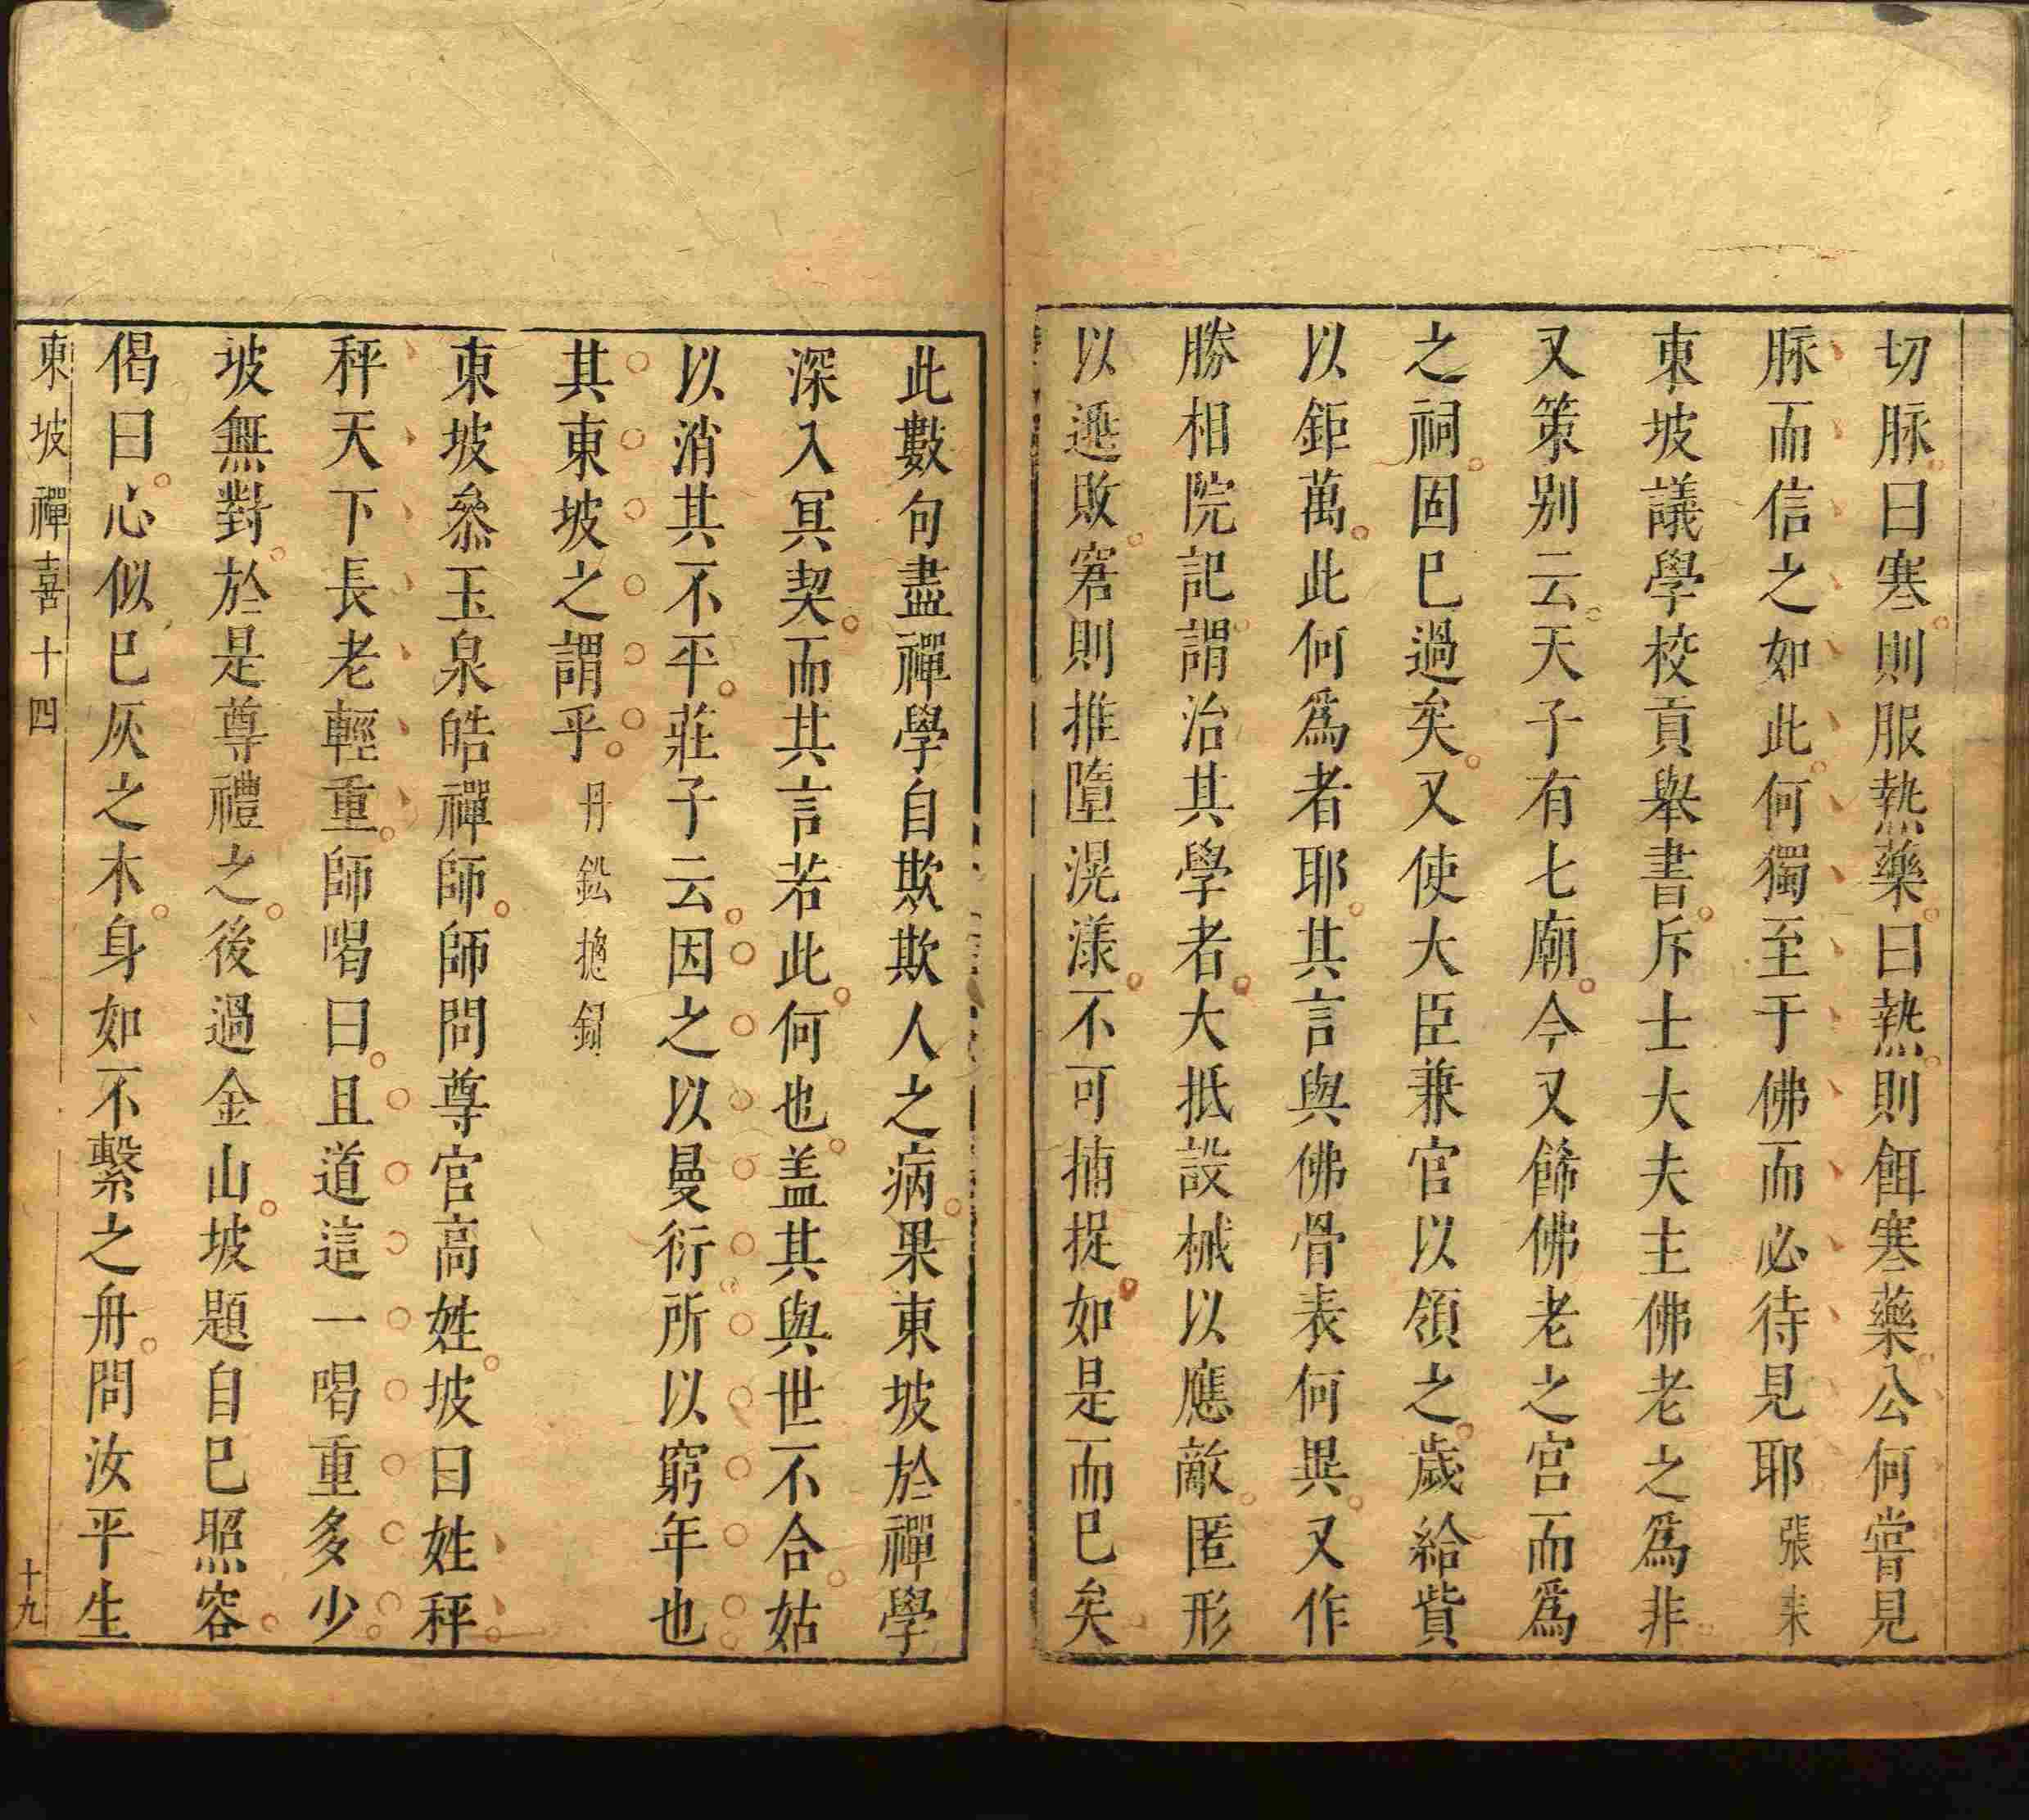 切脉曰寒則服熱藥曰熱則餌寒藥公何嘗見
脉而信之如此何獨至于佛而必待見耶張耒
東坡議學校貢舉書斥士大夫主佛老之爲非
又策别云天子有七廟今又餙佛老之宫而爲
之祠固已過矣又使大臣兼官以領之歲給貲
以鉅萬此何爲者耶其言與佛骨表何異又作
勝相院記謂治其學者大抵設械以應敵匿形
以逃敗窘則推墮滉漾不可捕捉如是而已矣
此數句盡禪學自欺欺人之病果東坡於禪學
深入冥契而其言若此何也盖其與世不合姑
以消其不平莊子云因之以曼衍所以窮年也
其東坡之謂乎丹鉛摠錄
東坡叅玉泉皓禪師師問尊官高姓坡曰姓秤
秤天下長老輕重師喝曰且道這一喝重多少
坡無對於是尊禮之後過金山坡題自已照容
偈曰心似已灰之木身如不繫之舟問汝平生
東坡禪喜十四
十九